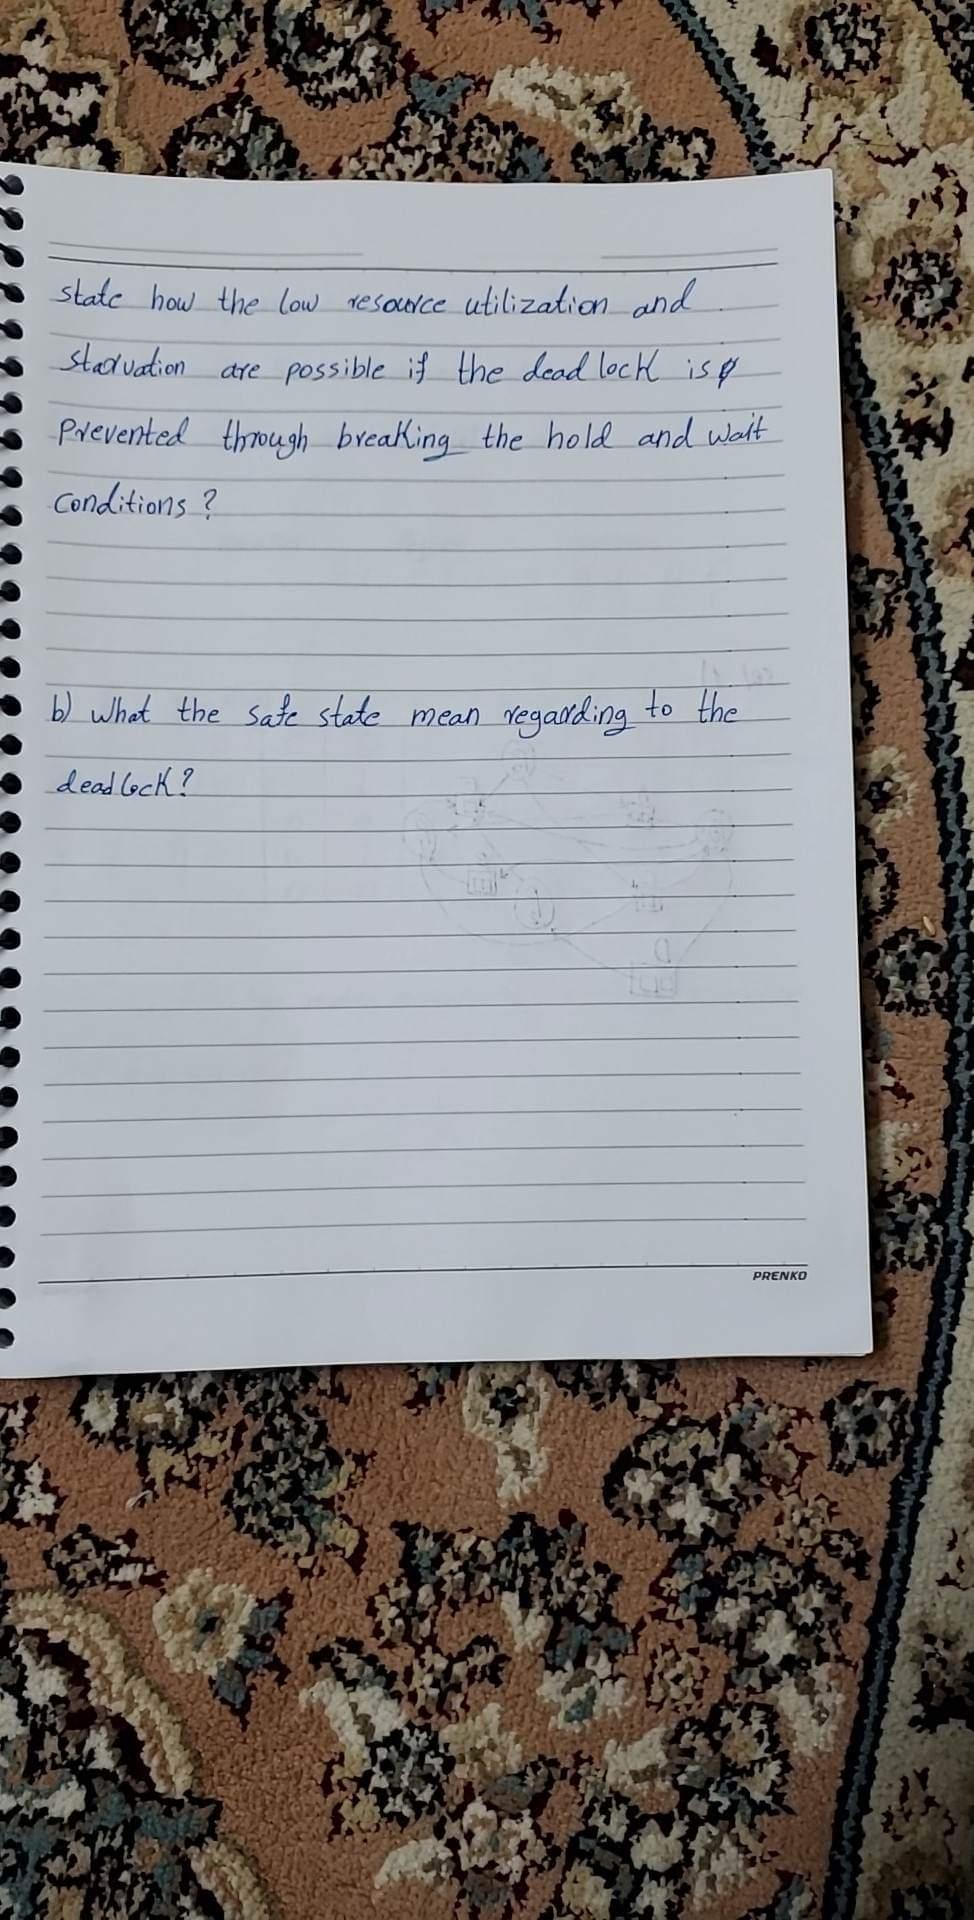 state how the low resource utilization and
starvation are possible if the deadlock is
Prevented through breaking the hold and wait
conditions?
b) What the safe state mean regarding to the
deadlock?
PRENKO